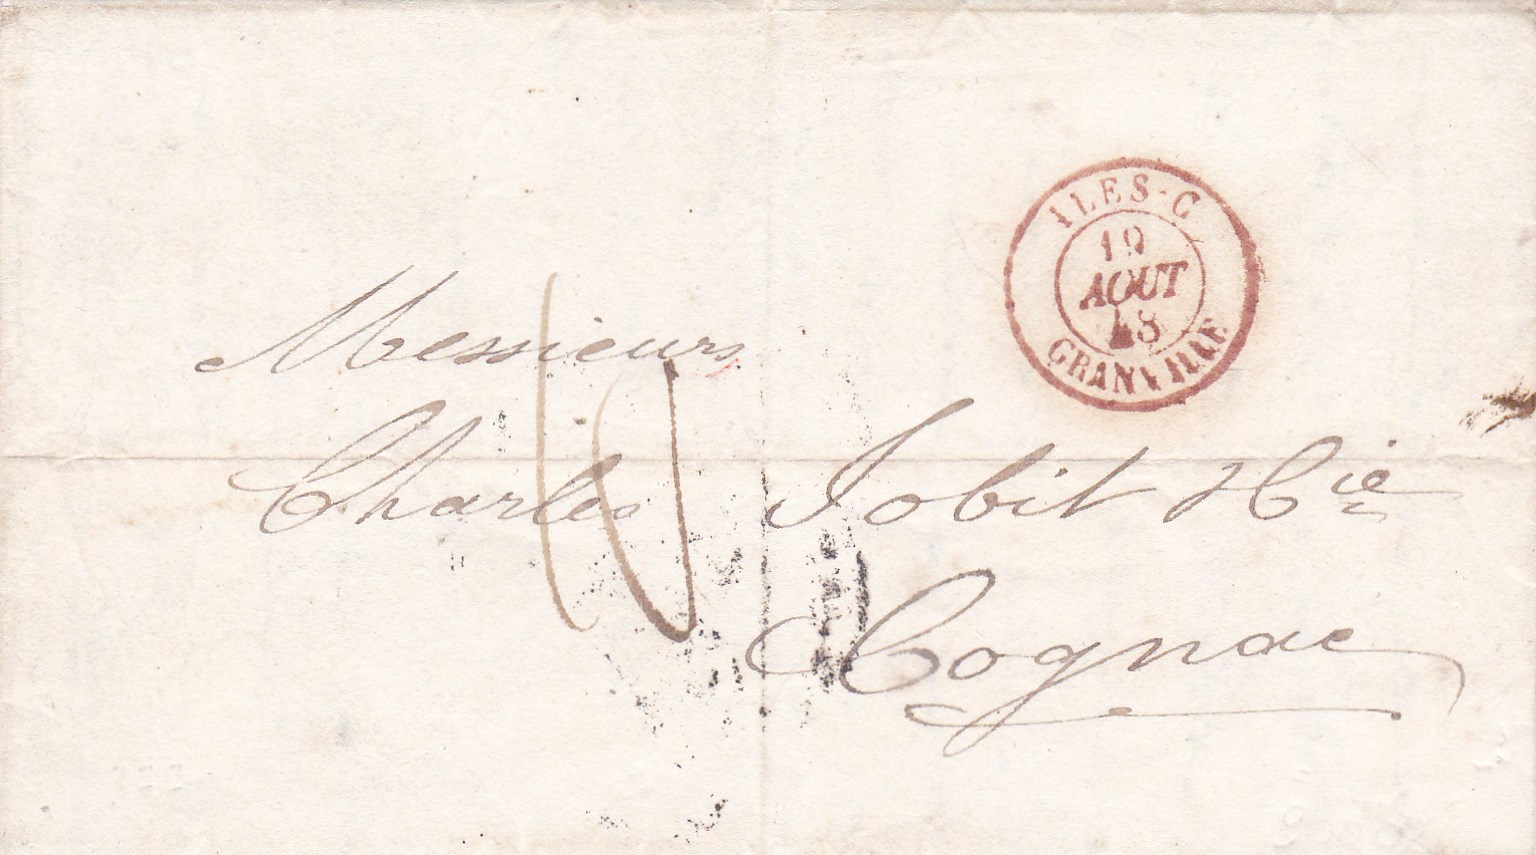 ILES-C
19
AOUT
48
GRANVILLE
10
Messieurs
Charles Jobit & Cie
Cognac